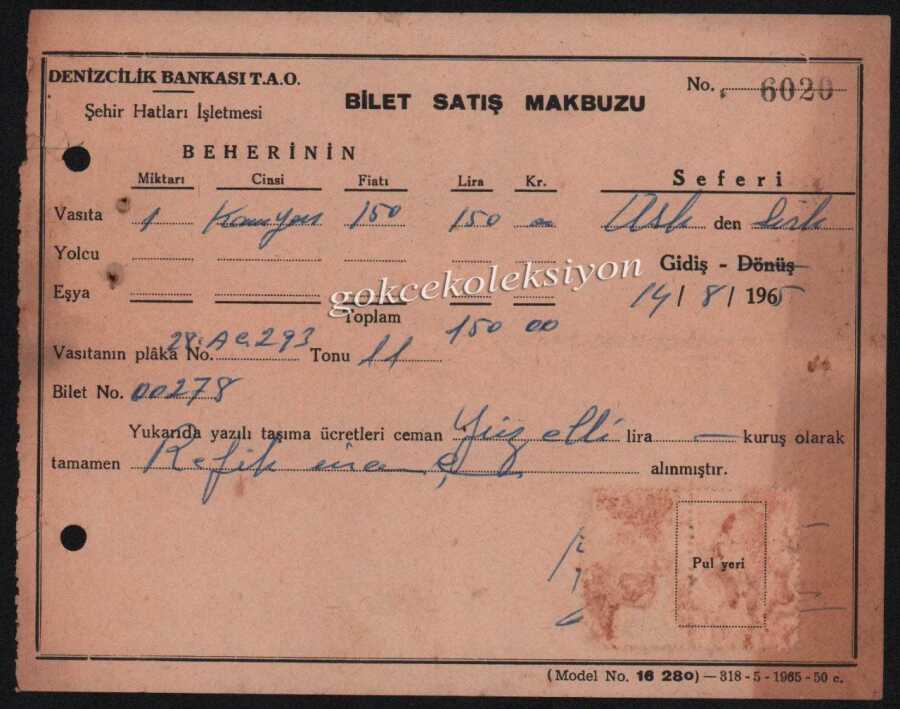 DENİZCİLİK BANKASI T.A.O.
Şehir Hatları İşletmesi
BİLET SATIŞ MAKBUZU
No. 6020
BEHERİNİN
Miktarı Cinsi Fiatı Lira Kr. Seferi
Vasıta 1 Kamyon 150 150 00 Üsk den
Yolcu
Gidiş - Dönüş
Eşya
14 / 8 / 1965
gokcekoleksiyon
Toplam 150 00
Vasıtanın plâka No. 28.AC.293 Tonu 11
Bilet No. 00278
Yukarıda yazılı taşıma ücretleri ceman Yüz elli lira — kuruş olarak
tamamen Refik alınmıştır.
Pul yeri
(Model No. 16 280) — 318 - 5 - 1965 - 50 c.